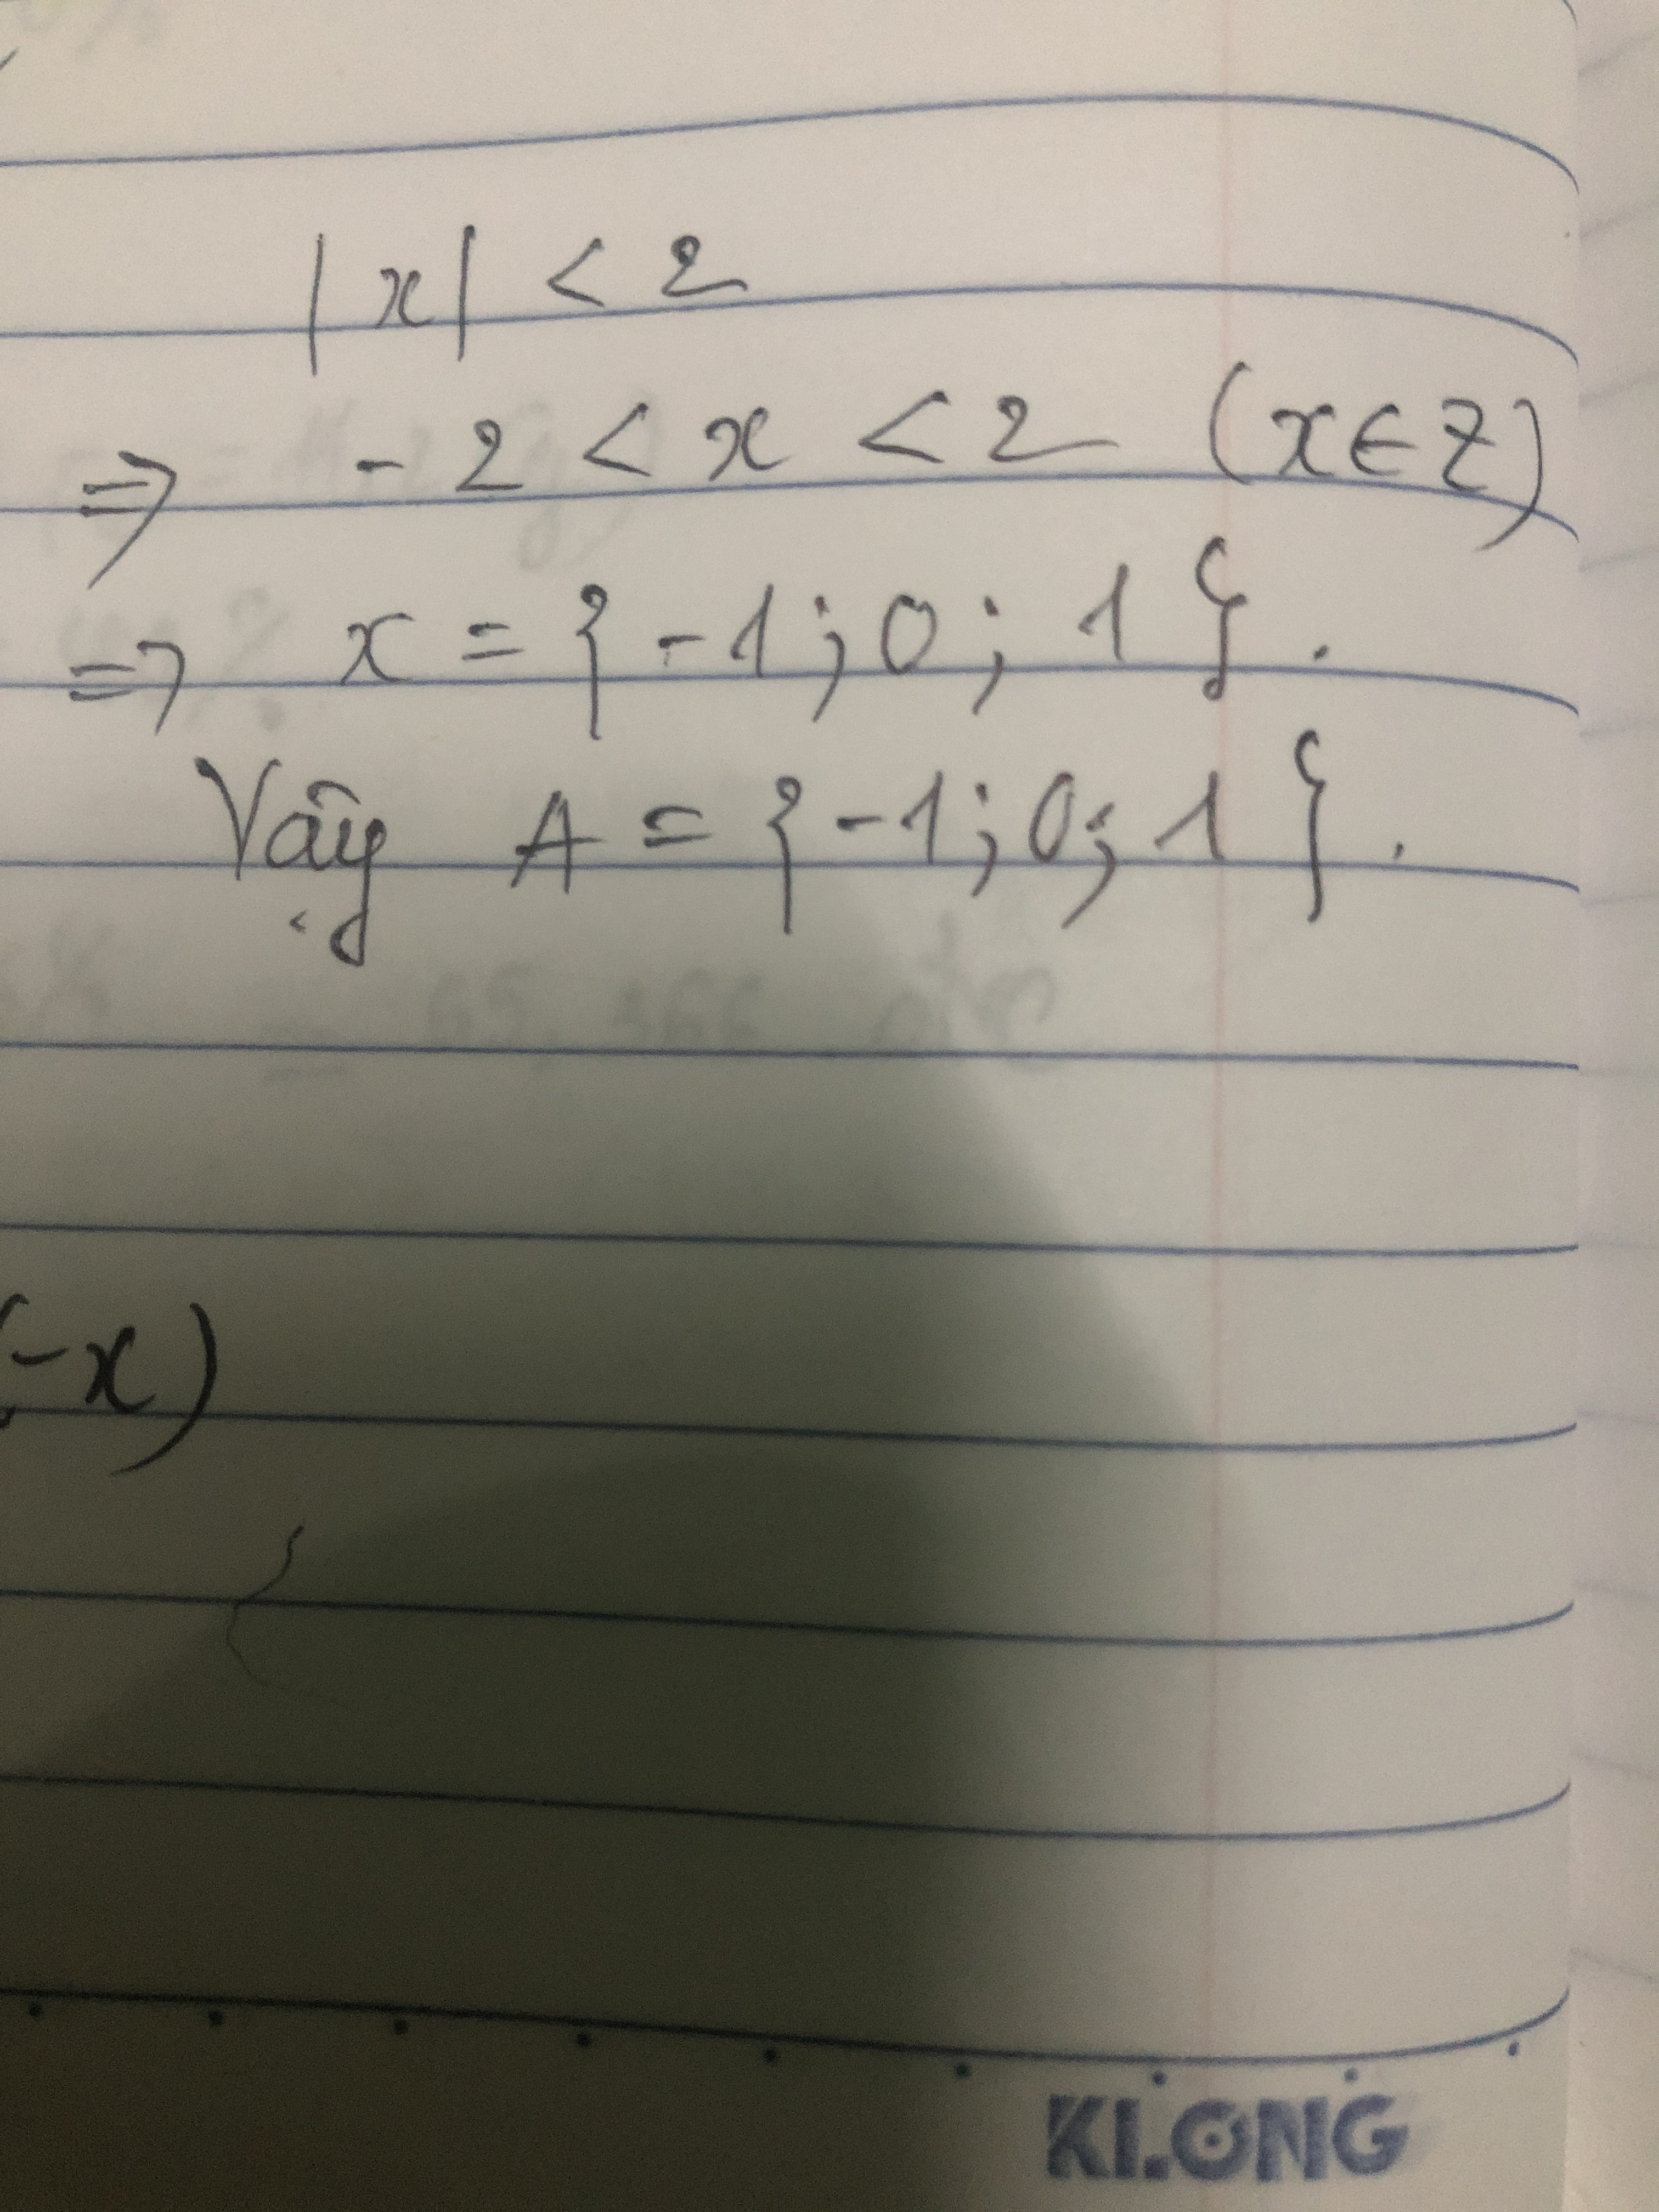 |x| < 2
=> -2 < x < 2 (x∈Z)
=> x = {-1; 0; 1}.
Vậy A = {-1; 0; 1}.
(-x)
KLONG